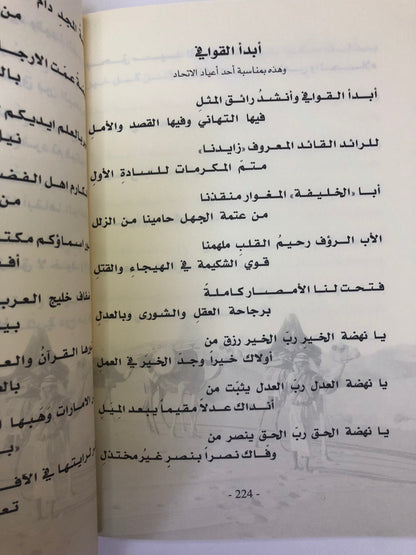 أبدأ القوافي
وهذه بمناسبة أحد أعياد الاتحاد
أبدأ القوافي وأنشدُ رائق المثلِ
فيها التهاني وفيها القصد والأمل
للرائد القائد المعروف «زايدنا»
متمّ المكرمات للسادةِ الأولِ
أبا «الخليفة» المغوار منقذنا
من عتمة الجهل حامينا من الزلل
الأب الرؤف رحيمُ القلبِ ملهمنا
قوي الشكيمة في الهيجاءِ والقتل
فتحت لنا الأمصار كاملةً
برجاحة العقلِ والشورى وبالعدلِ
يا نهضة الخير ربّ الخير رزق من
أولاك خيراً وجدَ الخير في العمل
يا نهضة العدل ربّ العدل يثبّت من
أنداك عدلاً مقيماً يبعد الميَل
يا نهضة الحق ربّ الحق ينصر من
وفّاك نصراً بنصرٍ غيرُ مختذل
- 224 -
ة المجد دام
من
ـة عمّت الارجـ
بالـ
بالعلم ايديكم
نيل
ـكارم اهل الفضـ
من
اسماؤكم مكتـ
أفـ
ـفاف خليج العربـ
بيـ
ـرها القرآنُ والعـ
بالعـ
الامارات وَهبها ا
ـرايتها في الآفـ
تعـ